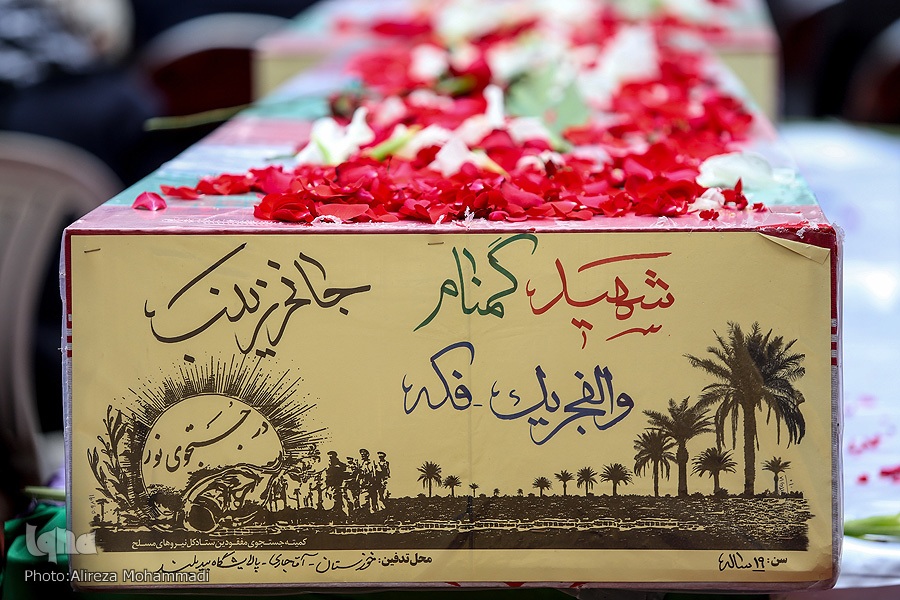 شهید گمنام جانم زینب
والفجر یک - فکه
در جستجوی نور
کمیته جستجوی مفقودین ستاد کل نیروهای مسلح
محل تدفین: خوزستان - آغاجاری - پالایشگاه بیدبلند
سن: ۱۹ ساله
iqna
Photo:Alireza Mohammadi